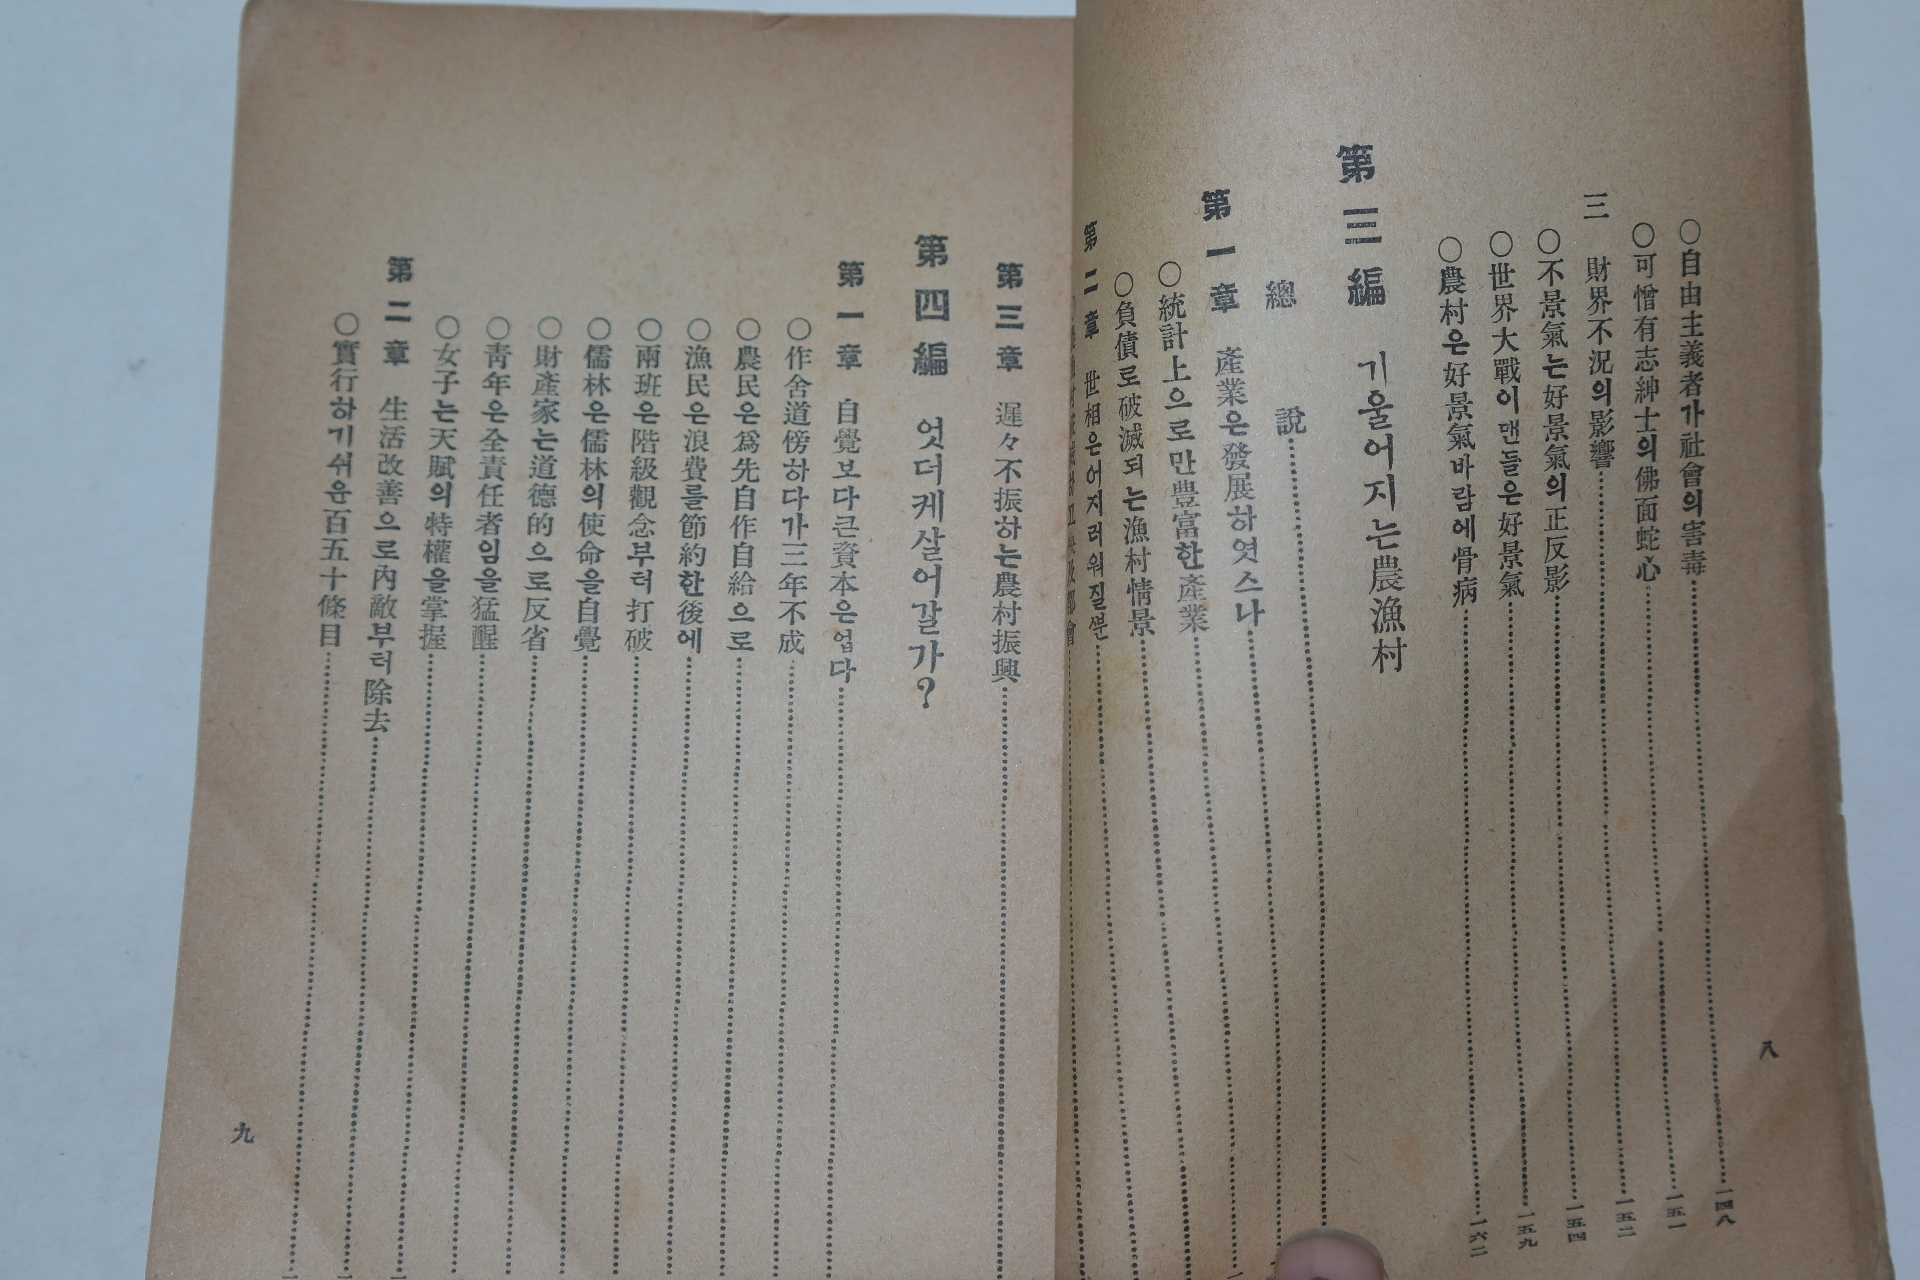 ○自由主義者가社會의害毒……一四八
○可憎有志紳士의佛面蛇心……一五一
三 財界不況의影響……一五二
○不景氣는好景氣의正反影……一五四
○世界大戰이맨들은好景氣……一五九
○農村은好景氣바람에骨病……一六二
第三編 기울어지는農漁村
總說……
第一章 產業은發展하엿스나……
○統計上으로만豊富한產業……
○負債로破滅되는漁村情景……
第二章 世相은어지러워질뿐……
八
第三章 遲々不振하는農村振興……
第四編 엇더케살어갈가?
第一章 自覺보다큰資本은업다……
○作舍道傍하다가三年不成……
○農民은爲先自作自給으로……
○漁民은浪費를節約한後에……
○兩班은階級觀念부터打破……
○儒林은儒林의使命을自覺……
○財產家는道德的으로反省……
○靑年은全責任者임을猛醒……
○女子는天賦의特權을掌握……
第二章 生活改善으로內敵부터除去……
○實行하기쉬운百五十條目……
九